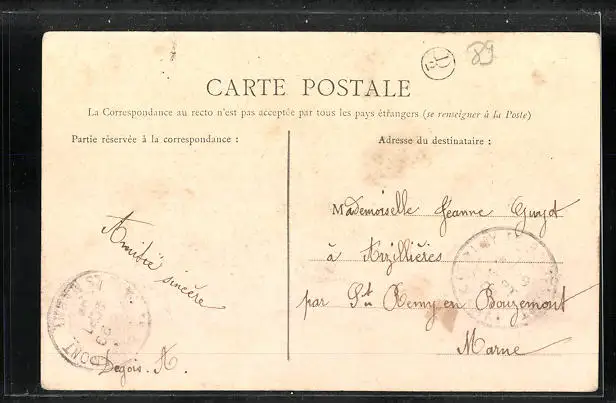 89
CARTE POSTALE
La Correspondance au recto n'est pas acceptée par tous les pays étrangers (se renseigner à la Poste)
Partie réservée à la correspondance :
Adresse du destinataire :
Amitié sincère
Degois. A.
Mademoiselle Jeanne Guyot
à Arzillières
par St Remy en Bouzemont
Marne